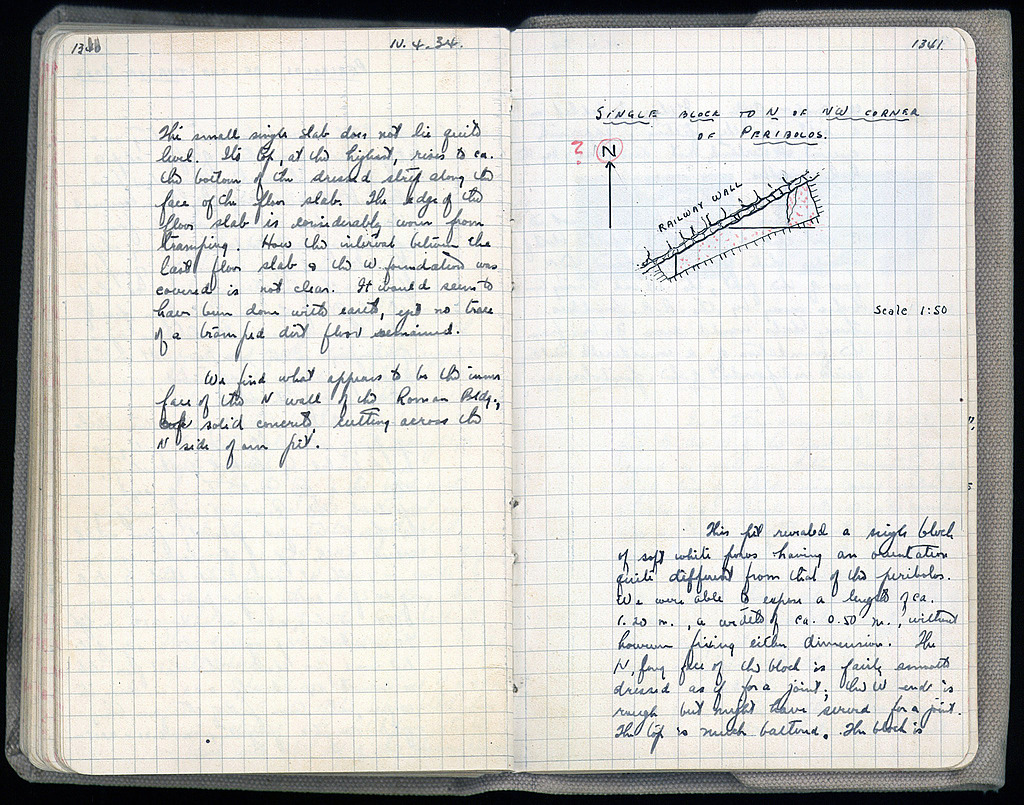 IV. 4. 34.
The small single slab does not lie quite
level. Its top, at the highest, rises to ca.
the bottom of the dressed strip along the
face of the floor slab. The edge of the
floor slab is considerably worn from
tramping. How the interval between the
last floor slab & the W. foundation was
covered is not clear. It would seem to
have been done with earth, yet no trace
of a tramped dirt floor remained.
We find what appears to be the inner
face of the N wall of the Roman Bldg.,
solid concrete, cutting across the
N side of our pit.
1341
SINGLE BLOCK TO N OF NW CORNER
OF PERIBOLOS.
? N
RAILWAY WALL
Scale 1:50
This pit revealed a single block
of soft white poros having an orientation
quite different from that of the peribolos.
We were able to expose a length of ca.
1.20 m., a width of ca. 0.50 m., without
however fixing either dimension. The
N, long face of the block is fairly smooth
dressed as if for a joint; the W end is
rough but might have served for a joint.
The top is much battered. The block is